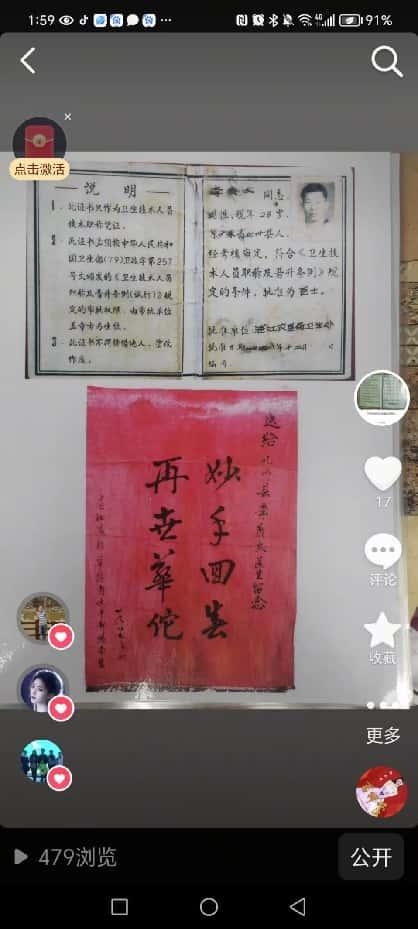 1:59
4G
91%
点击激活
说 明
1、此证书只作为卫生技术人员
技术职称凭证。
2、此证书立须按中华人民共和
国卫生部(79)卫政字第257
号文颁发的《卫生技术人员
职称及晋升条例(试行)》规
定的审批权限,由审批单位
盖章方为生效。
3、此证书不得转借他人,涂改
作废。
同志
现年28岁,
县人。
经考核审定,符合《卫生技
术人员职称及晋升条例》规
定的条件,批准为医士。
批准单位
批准日期
编号
送给
医生留念
妙手回春
再世华佗
17
评论
收藏
更多
479浏览
公开